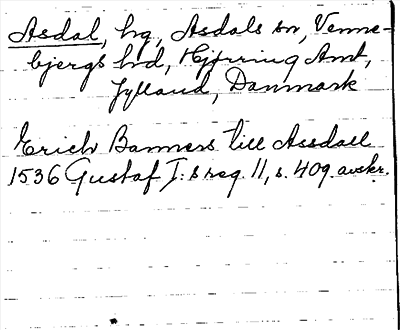 Asdal, hg, Asdals sn, Venne-
bjergs hd, Hjørring Amt,
Jylland, Danmark
Erich Banners till Assdall
1536 Gustaf I:s reg. 11, s. 409. avskr.